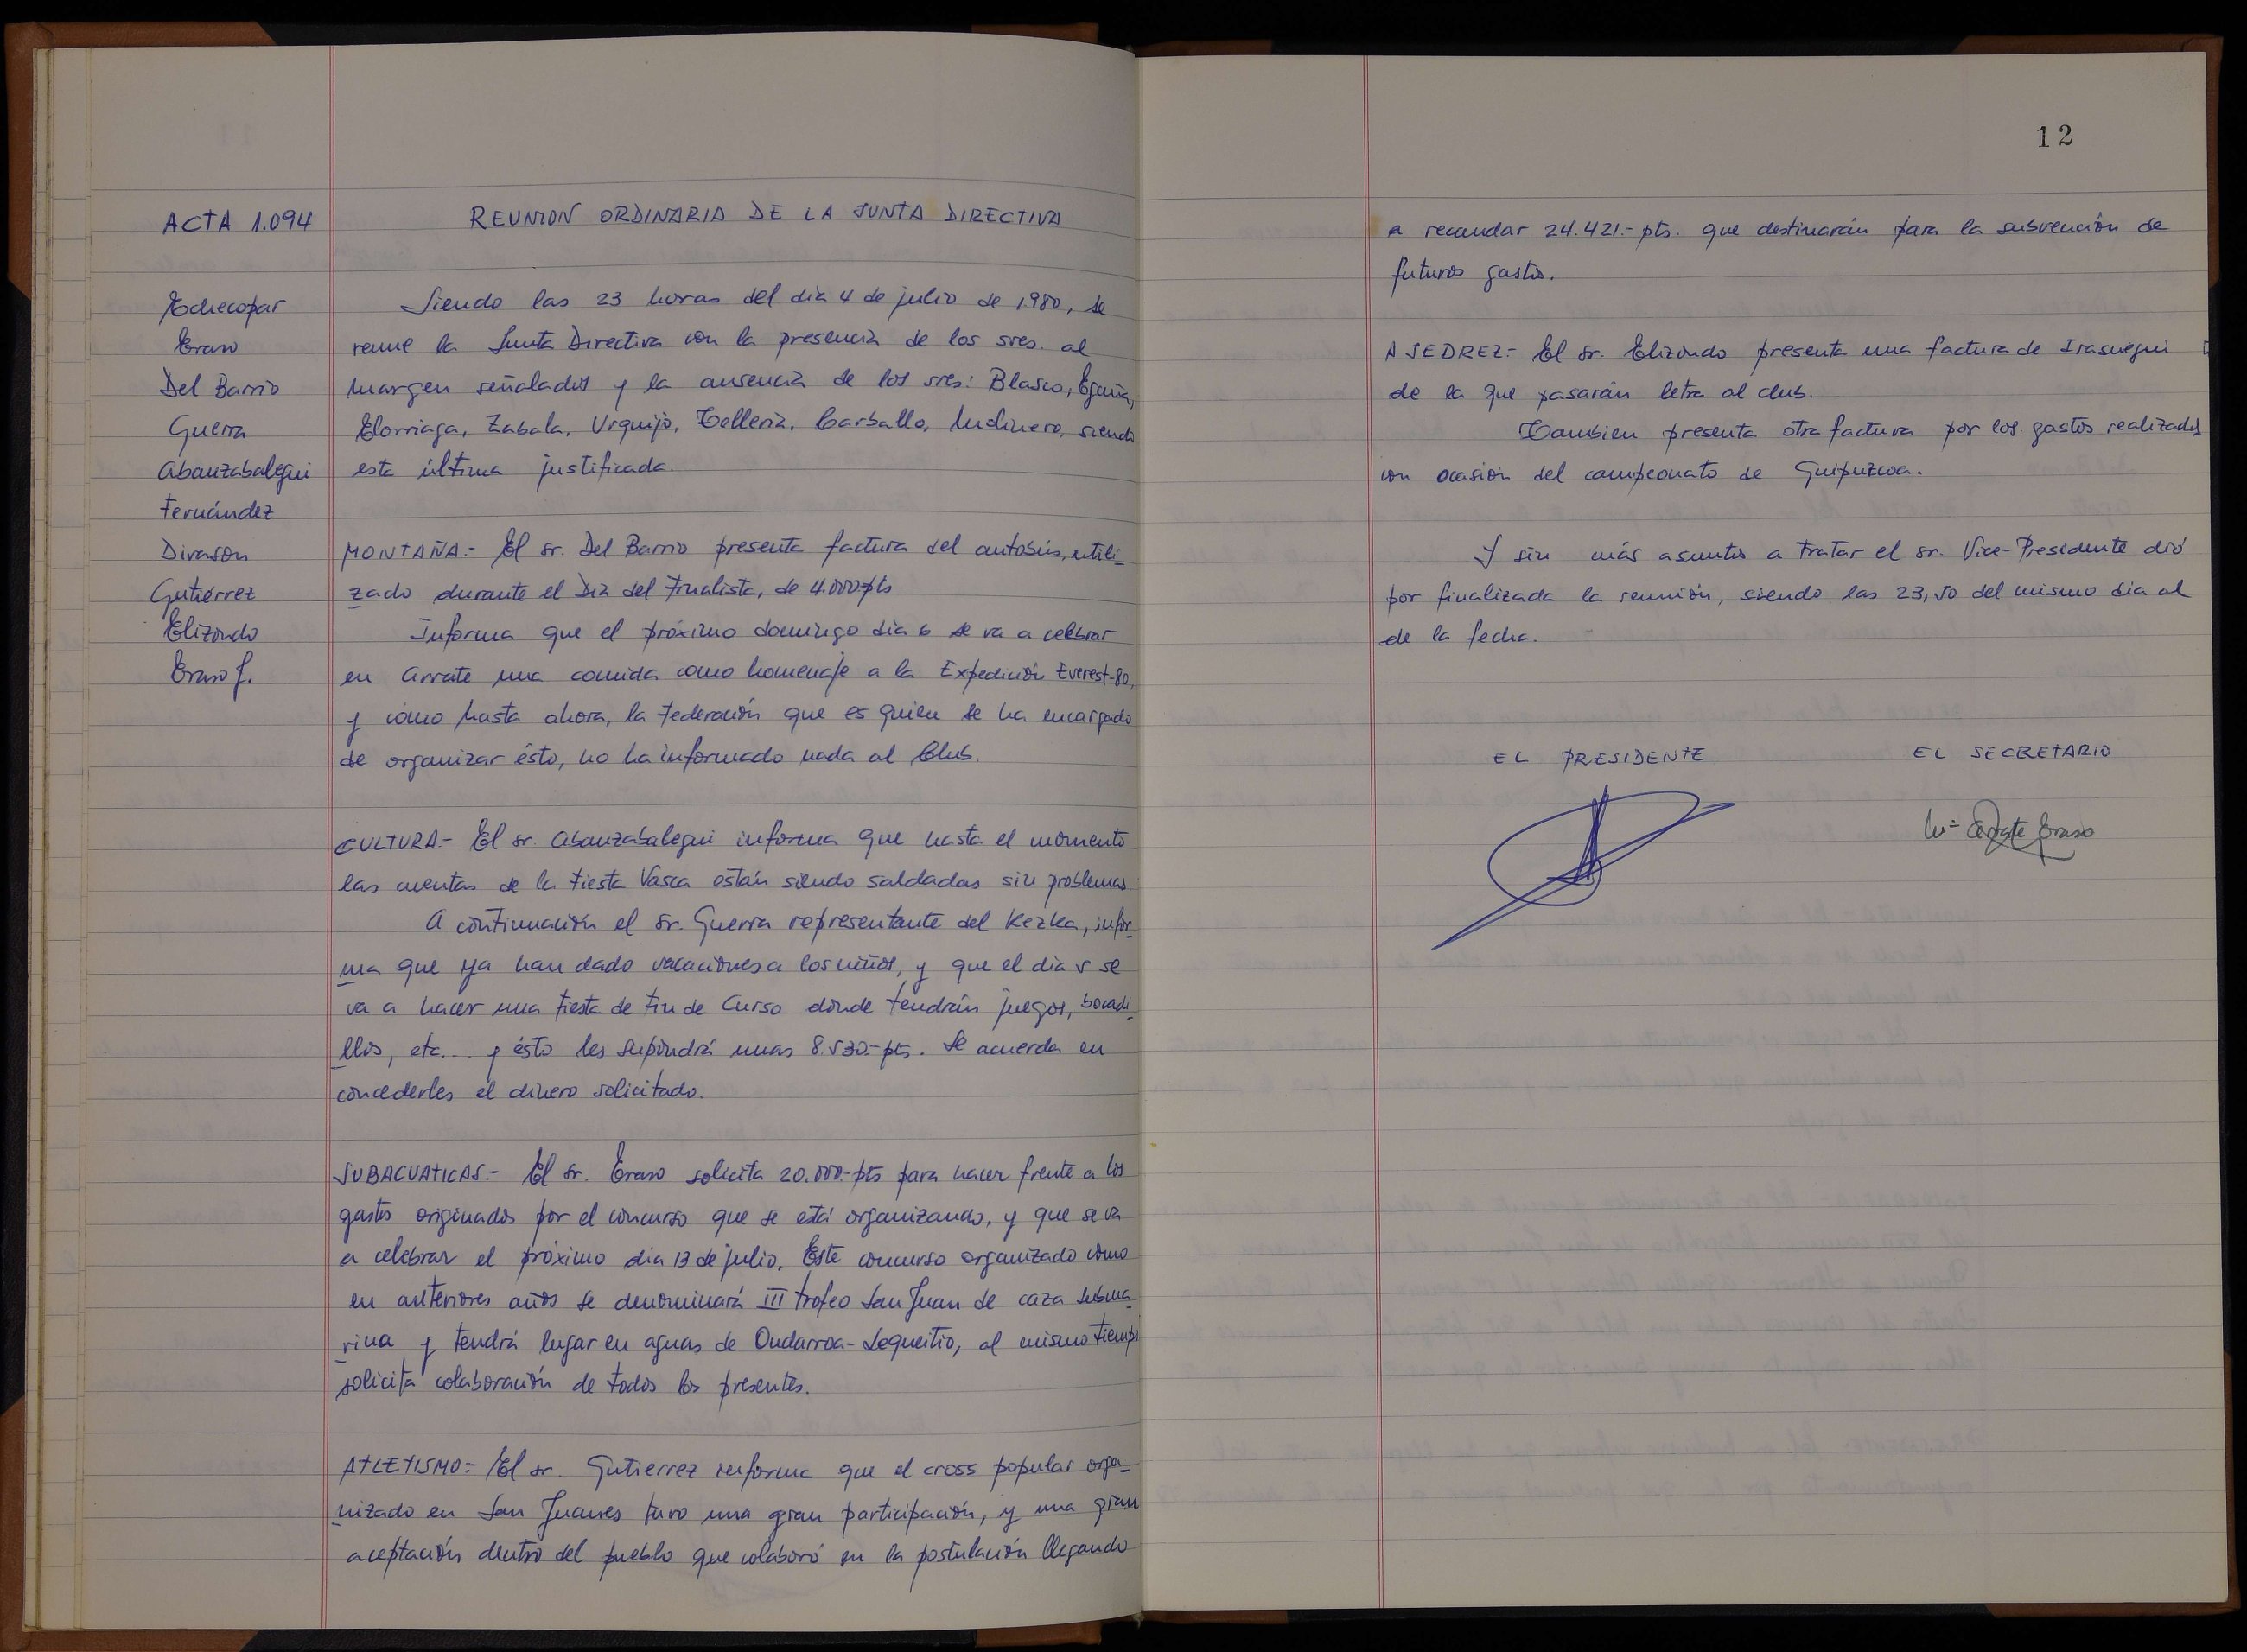 ACTA 1.094
REUNION ORDINARIA DE LA JUNTA DIRECTIVA
Echecopar
Eraso
Del Barrio
Guerra
Abanzabalegui
Fernández
Divasson
Gutiérrez
Elizondo
Eraso J.
Siendo las 23 horas del dia 4 de julio de 1.980, se
reune la Junta Directiva con la presencia de los sres. al
margen señalados y la ausencia de los sres: Blasco, Egaña,
Elorriaga, Zabala, Urquijo, Telleria, Carballo, Indinero, siendo
esta última justificada.
MONTAÑA.- El sr. Del Barrio presenta factura del autobús, utili-
zado durante el Dia del Finalista, de 4.000.-pts
Informa que el próximo domingo dia 6 se va a celebrar
en Arrate una comida como homenaje a la Expedición Everest-80,
y como hasta ahora, la Federación que es quien se ha encargado
de organizar ésto, no ha informado nada al Club.
CULTURA.- El sr. Abanzabalegui informa que hasta el momento
las cuentas de la Fiesta Vasca están siendo saldadas sin problemas.
A continuación el sr. Guerra representante del Kezka, infor-
ma que ya han dado vacaciones a los niños, y que el dia 5 se
va a hacer una Fiesta de Fin de Curso donde tendrán juegos, bocadi-
llos, etc... y ésto les supondrá unas 8.530.-pts. Se acuerda en
concederles el dinero solicitado.
SUBACUATICAS.- El sr. Eraso solicita 20.000.-pts para hacer frente a los
gastos originados por el concurso que se está organizando, y que se va
a celebrar el próximo dia 13 de julio. Este concurso organizado como
en anteriores años se denominará III trofeo San Juan de caza subma-
rina y tendrá lugar en aguas de Ondarroa-Lequeitio, al mismo tiempo
solicita colaboración de todos los presentes.
ATLETISMO.- El sr. Gutierrez informa que el cross popular orga-
nizado en San Juanes tuvo una gran participación, y una gran
aceptación dentro del pueblo que colaboró en la postulación llegando
12
a recaudar 24.421.-pts. que destinarán para la subvención de
futuros gastos.
AJEDREZ.- El sr. Elizondo presenta una factura de Irasuegui
de la que pasarán letra al club.
Tambien presenta otra factura por los gastos realizados
con ocasión del campeonato de Guipuzcoa.
Y sin más asuntos a tratar el sr. Vice-Presidente dió
por finalizada la reunión, siendo las 23,50 del mismo dia al
de la fecha.
EL PRESIDENTE
EL SECRETARIO
Mª Arrate Eraso